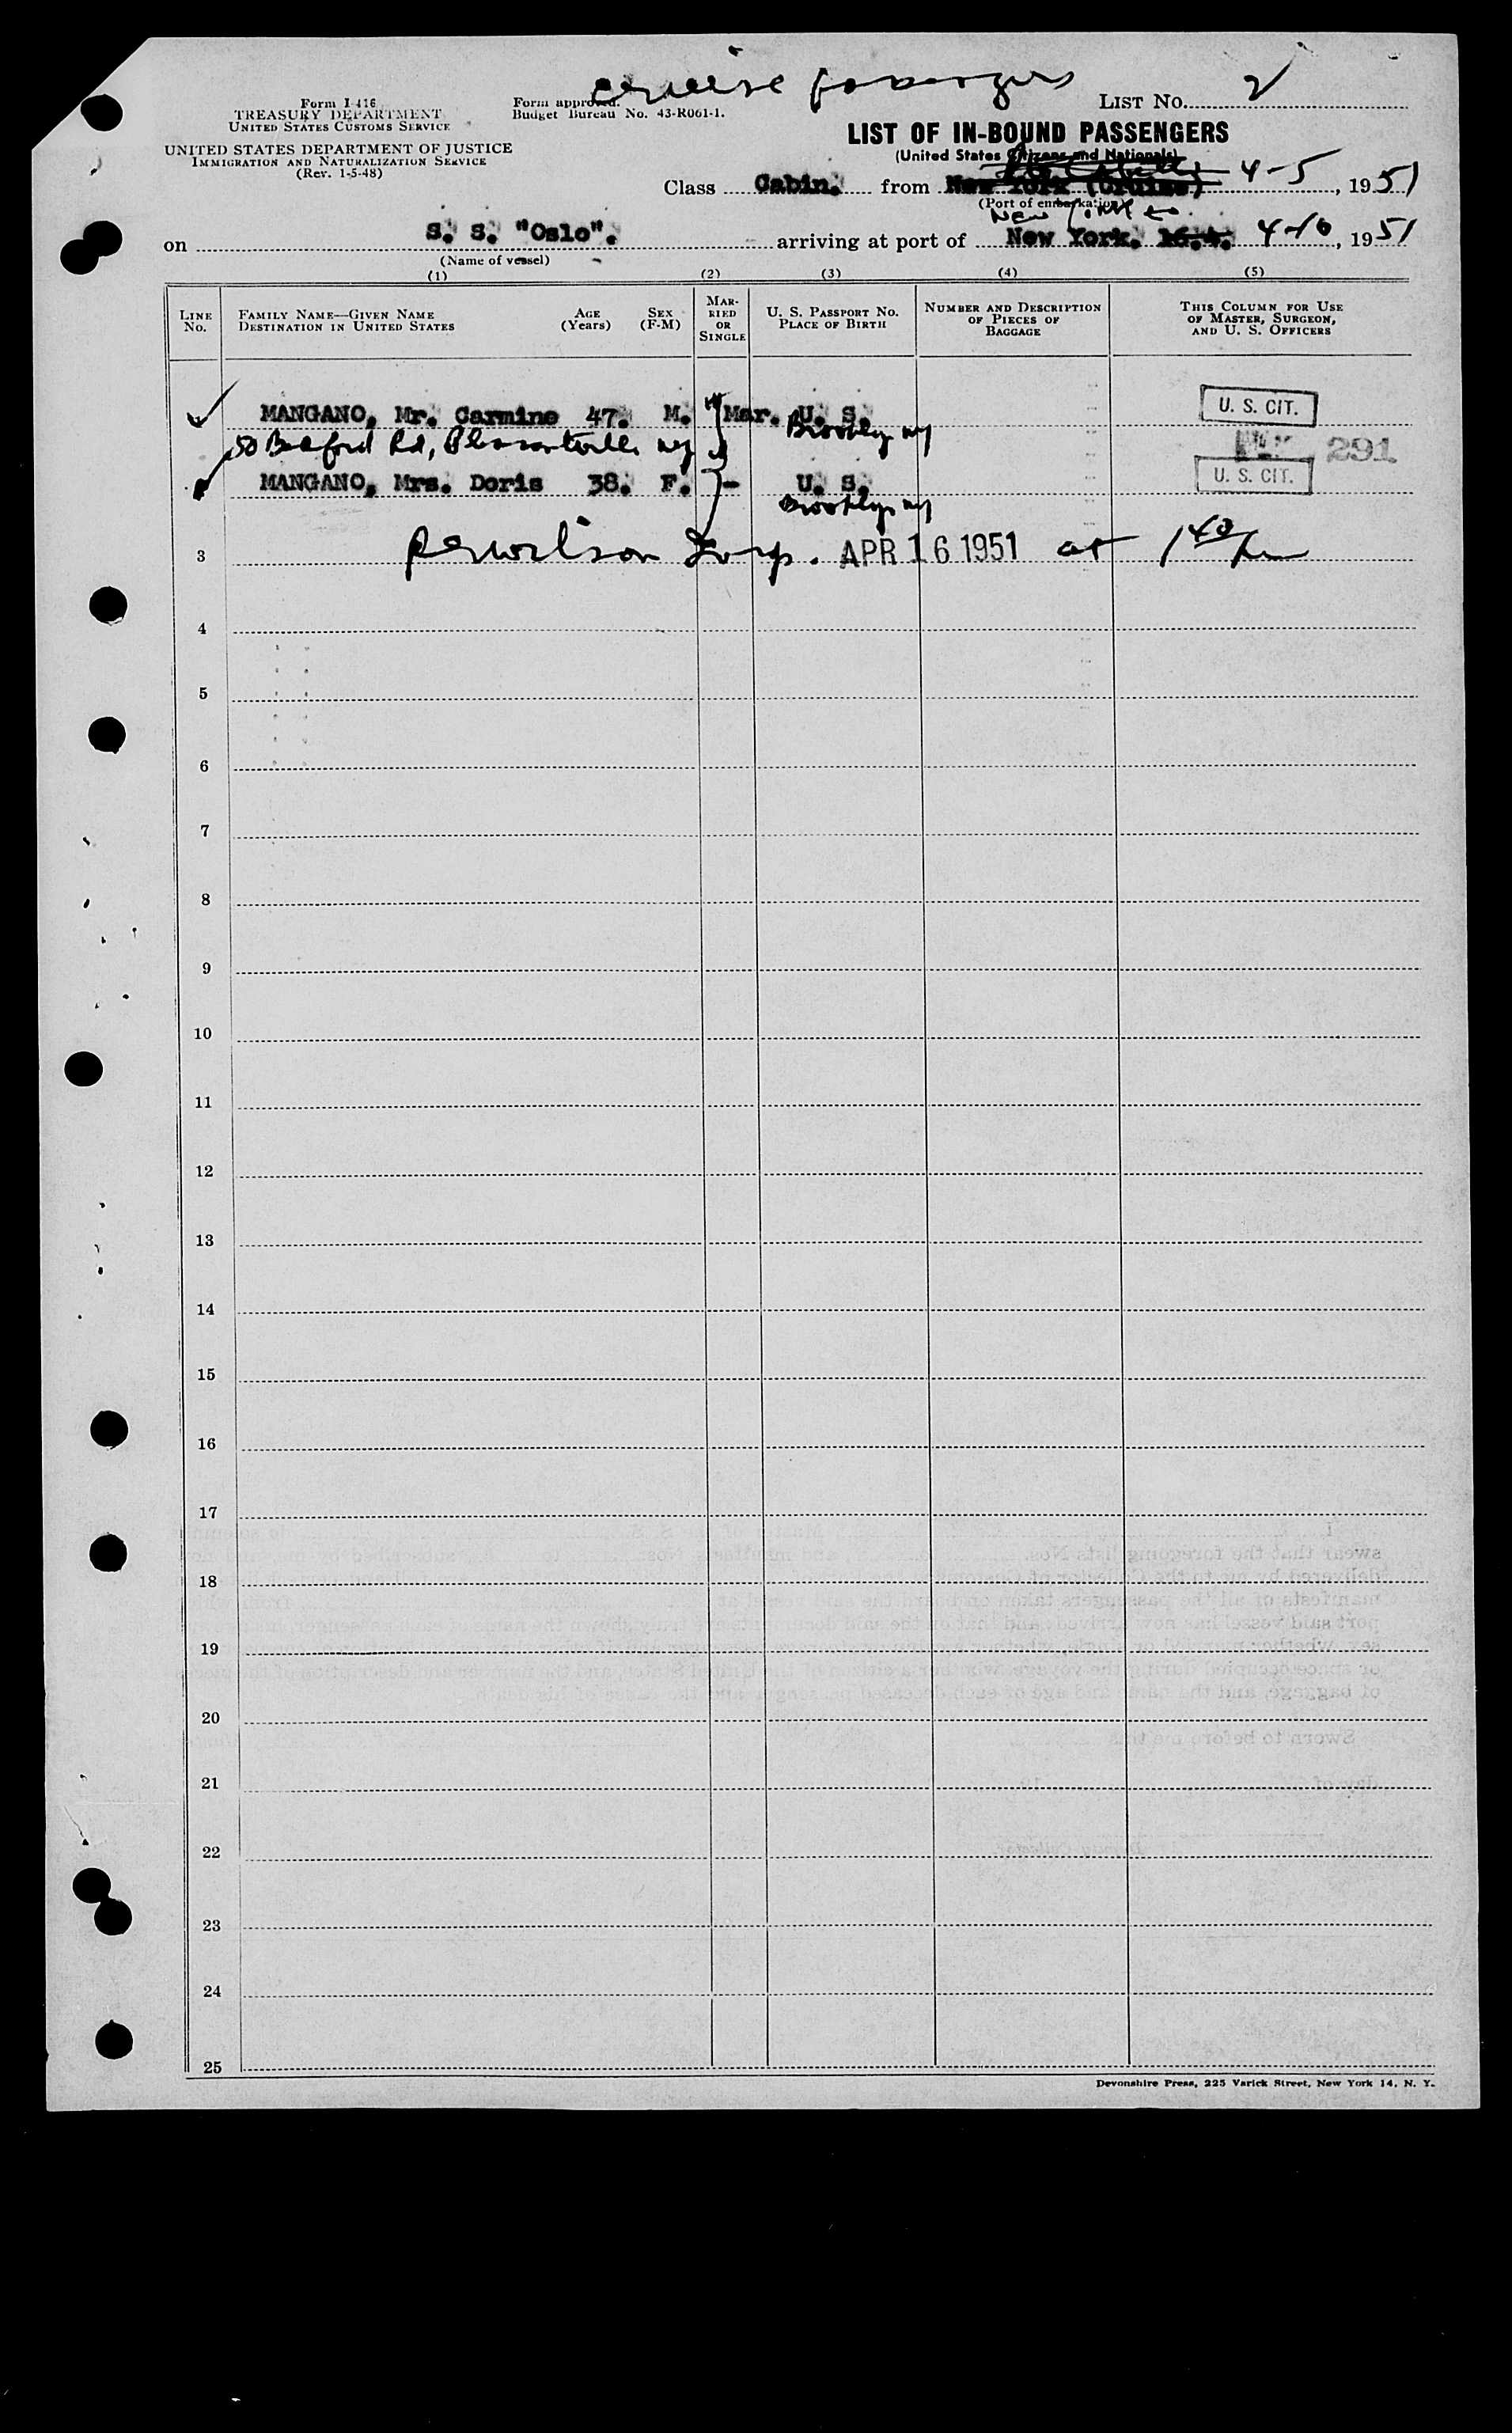 cruise passengers
Form I-416
TREASURY DEPARTMENT
UNITED STATES CUSTOMS SERVICE
UNITED STATES DEPARTMENT OF JUSTICE
IMMIGRATION AND NATURALIZATION SERVICE
(Rev. 1-5-48)
Form approved.
Budget Bureau No. 43-R061-1.
LIST NO. 2
LIST OF IN-BOUND PASSENGERS
(United States Citizens and Nationals)
Class Cabin. from New York (Cruise) 4-5, 1951
(Port of embarkation)
New York
on S. S. "Oslo". arriving at port of New York. 16.4. 4-16, 1951
(Name of vessel)
(1) (2) (3) (4) (5)
LINE NO.
FAMILY NAME—GIVEN NAME
DESTINATION IN UNITED STATES
AGE (Years)
SEX (F-M)
MARRIED OR SINGLE
U. S. PASSPORT NO.
PLACE OF BIRTH
NUMBER AND DESCRIPTION OF PIECES OF BAGGAGE
THIS COLUMN FOR USE OF MASTER, SURGEON, AND U. S. OFFICERS
MANGANO, Mr. Carmine 47. M. Mar. U. S. U. S. CIT.
Brooklyn ny
50 Bedford Rd, Pleasantville ny 291
MANGANO, Mrs. Doris 38. F. - U. S. U. S. CIT.
Brooklyn ny
3 Insp. APR 16 1951 at 1 40
4
5
6
7
8
9
10
11
12
13
14
15
16
17
18
19
20
21
22
23
24
25
Devonshire Press, 225 Varick Street, New York 14, N. Y.